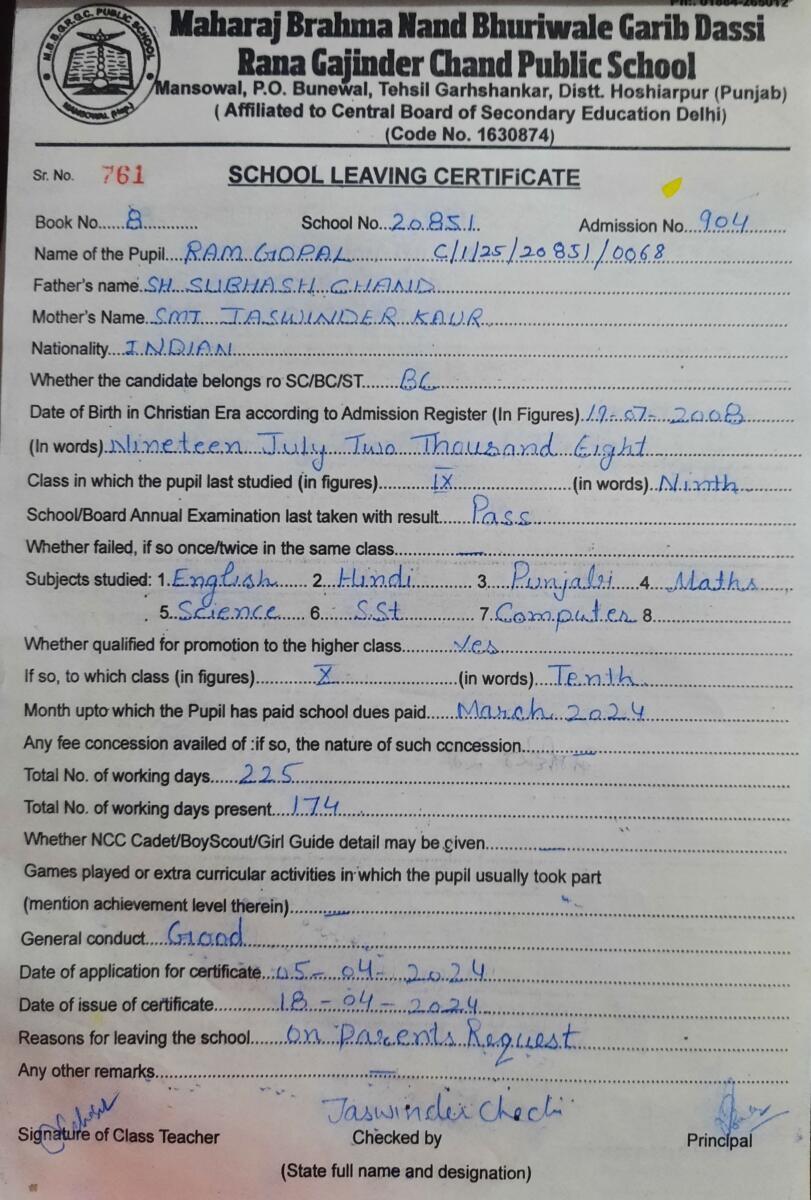 M.B.B.G.R.G.C. PUBLIC SCHOOL
MANSOWAL (Hsp.)
Maharaj Brahma Nand Bhuriwale Garib Dassi
Rana Gajinder Chand Public School
Mansowal, P.O. Bunewal, Tehsil Garhshankar, Distt. Hoshiarpur (Punjab)
( Affiliated to Central Board of Secondary Education Delhi)
(Code No. 1630874)
Sr. No. 761 SCHOOL LEAVING CERTIFiCATE
Book No......8............ School No...20851. Admission No...904........
Name of the Pupil....RAM GOPAL C/1/25/20851/0068
Father's name.SH. SUBHASH CHAND
Mother's Name..SMT. JASWINDER KAUR
Nationality....INDIAN
Whether the candidate belongs ro SC/BC/ST.......BC
Date of Birth in Christian Era according to Admission Register (In Figures).19-07-2008
(In words).Nineteen July Two Thousand Eight
Class in which the pupil last studied (in figures).........IX (in words)..Ninth
School/Board Annual Examination last taken with result......Pass
Whether failed, if so once/twice in the same class............—
Subjects studied: 1.English 2..Hindi 3..Punjabi 4..Maths
5..Science 6..S.St 7.Computer 8
Whether qualified for promotion to the higher class..........Yes
If so, to which class (in figures)..........X (in words)...Tenth
Month upto which the Pupil has paid school dues paid.....March 2024
Any fee concession availed of :if so, the nature of such ccncession.........—
Total No. of working days.....225
Total No. of working days present....174
Whether NCC Cadet/BoyScout/Girl Guide detail may be given..........—
Games played or extra curricular activities in which the pupil usually took part
(mention achievement level therein).......—
General conduct....Good
Date of application for certificate..05-04-2024
Date of issue of certificate............18-04-2024
Reasons for leaving the school......on Parents Request
Any other remarks.......—
Jaswinder Chechi
Signature of Class Teacher Checked by Principal
(State full name and designation)